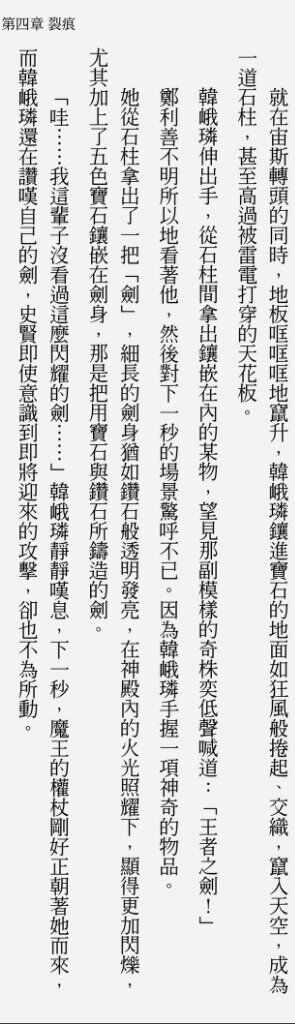 第四章 裂痕
就在宙斯轉頭的同時，地板哐哐哐地竄升，韓峨璘鑲進寶石的地面如狂風般捲起、交織，竄入天空，成為
一道石柱，甚至高過被雷電打穿的天花板。
韓峨璘伸出手，從石柱間拿出鑲嵌在內的某物，望見那副模樣的奇株奕低聲喊道：「王者之劍！」
鄭利善不明所以地看著他，然後對下一秒的場景驚呼不已。因為韓峨璘手握一項神奇的物品。
她從石柱拿出了一把「劍」，細長的劍身猶如鑽石般透明發亮，在神殿內的火光照耀下，顯得更加閃爍，
尤其加上了五色寶石鑲嵌在劍身，那是把用寶石與鑽石所鑄造的劍。
「哇……我這輩子沒看過這麼閃耀的劍……」韓峨璘靜靜嘆息，下一秒，魔王的權杖剛好正朝著她而來，
而韓峨璘還在讚嘆自己的劍，史賢即使意識到即將迎來的攻擊，卻也不為所動。